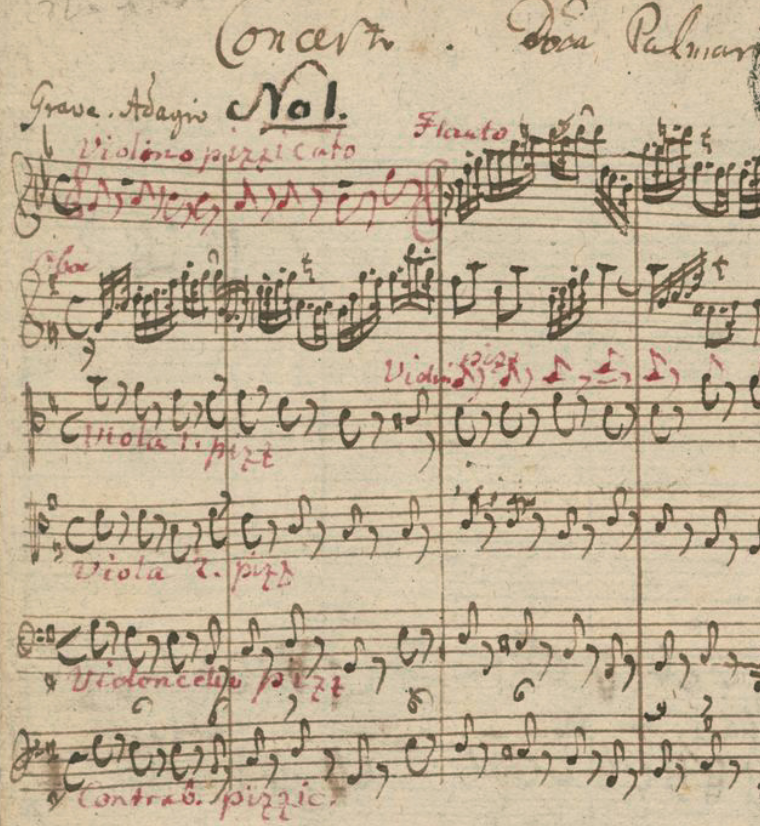 Concerto. Doca Palmar
Grave. Adagio No 1.
Violino pizzicato
Flauto
Oboe
Violin pizz
Viola 1. pizz
Viola 2. pizz
Violoncello pizz
6 6 7 6 6
Contrab. pizzic.